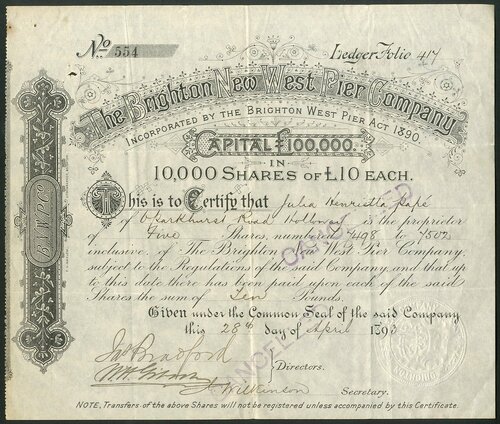 No 554
Ledger Folio 417
The Brighton New West Pier Company
INCORPORATED BY THE BRIGHTON WEST PIER ACT 1890.
CAPITAL £100,000.
IN
10,000 SHARES OF £10 EACH.
This is to Certify that Julia Henrietta Papé
of Parkhurst Road Holloway is the proprietor
of Five Shares, numbered 7498 to 7502
inclusive, of The Brighton New West Pier Company,
subject to the Regulations of the said Company, and that up
to this date there has been paid upon each of the said
Shares the sum of Ten Pounds.
Given under the Common Seal of the said Company
this 28th day of April 1893
Jas Bradford
Directors.
J. Wilkinson
Secretary.
NOTE, Transfers of the above Shares will not be registered unless accompanied by this Certificate.
CANCELLED
CANCELLED